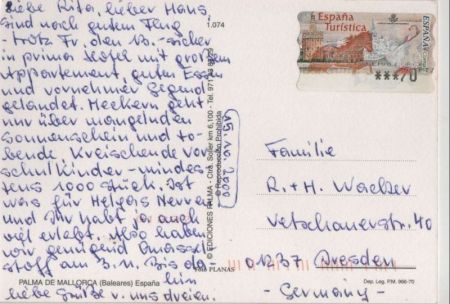 Liebe Rita, lieber Hans,
sind nach gutem Flug
trotz Fr. den 13. sicher
in prima Hotel mit großem
Appartement, gutem Essen
und vornehmer Gegend
gelandet. Meckern geht
nur über mangelnden
Sonnenschein und to-
bende kreischende Vor-
schulkinder - mindes-
tens 1000 Stück. Ist
was für Helgas Nerven
und Ihr habt ja auch
viel erlebt. Also haben
wir genügend
stoff am 3.11. Bis da
hin
liebe Grüße v. uns dreien.
19.10.2000
1.074
© EDICIONES PALMA - Ctra. Soller km 6,100 - Tel. 971
© Reproducción Prohibida
Foto PLANAS
PALMA DE MALLORCA (Baleares) España
España
Turística
ESPAÑA
***70
Familie
R. + H. Wacker
Vetschauerstr. 40
01237 Dresden
- Germany -
Dep. Leg. P.M. 966-70